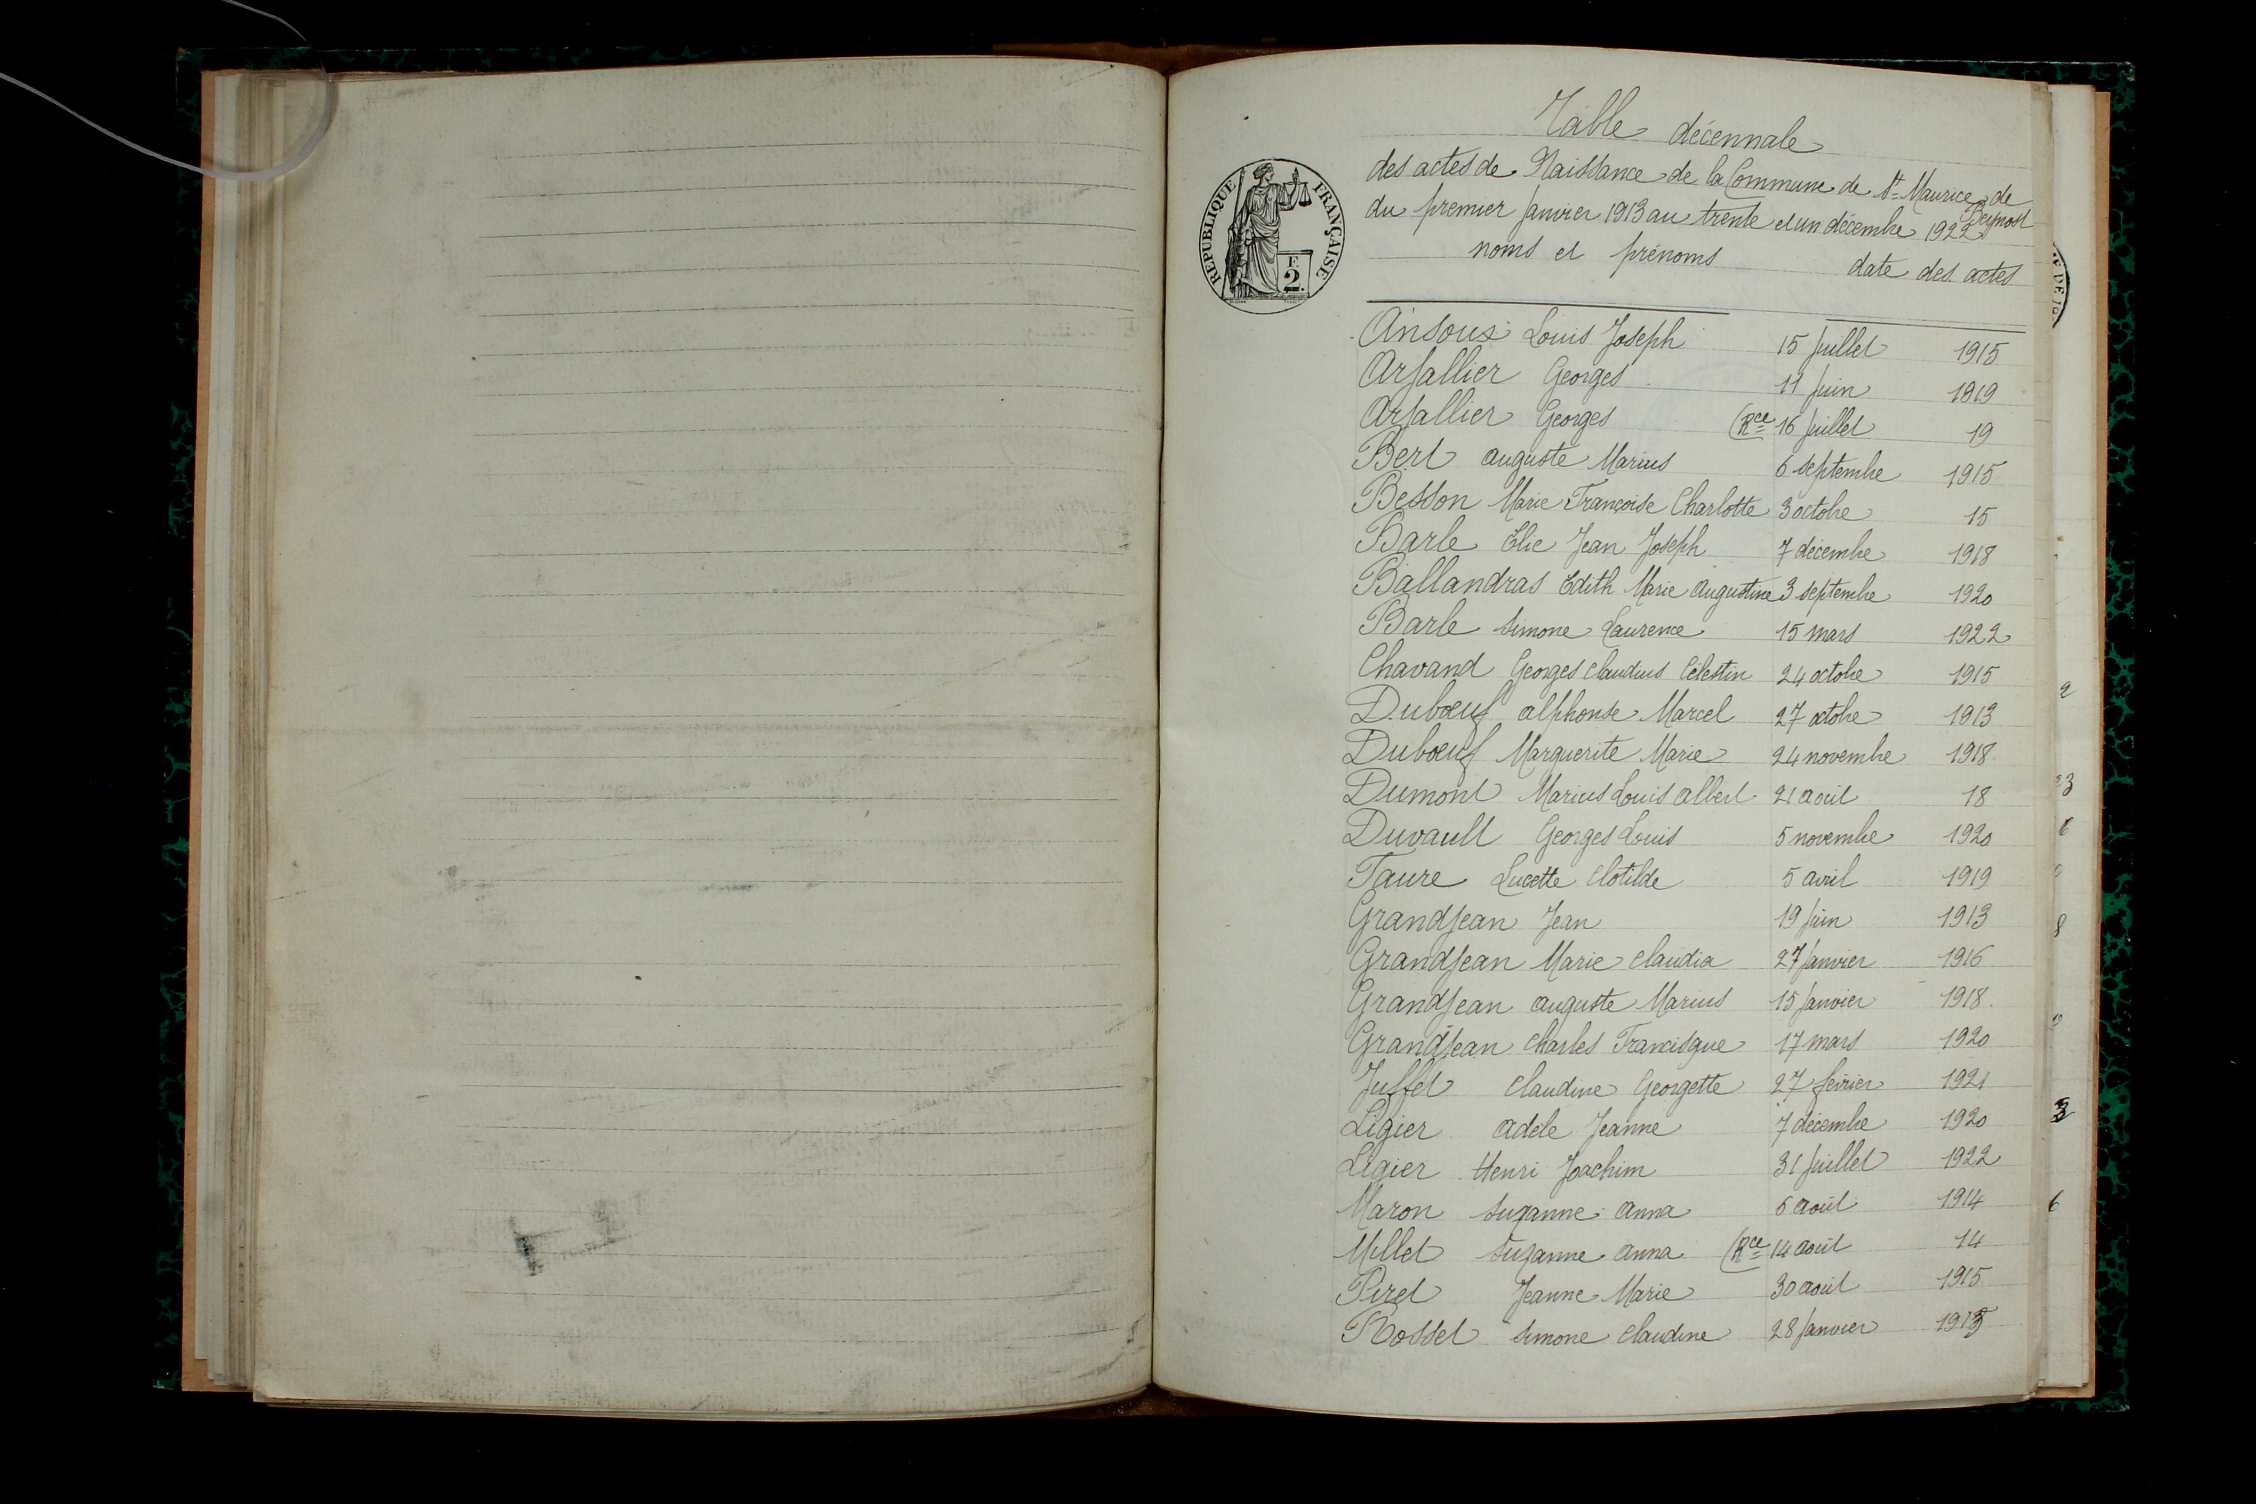 Table décennale
des actes de Naissance de la Commune de St Maurice de Beynost
du premier janvier 1913 au trente et un décembre 1922
noms et prénoms date des actes
RÉPUBLIQUE FRANÇAISE
F.
2.
Ansoux Louis Joseph 15 juillet 1915
Arfallier Georges 11 juin 1919
Arfallier Georges (Rce 16 juillet 19
Bert Auguste Marius 6 septembre 1915
Besson Marie Françoise Charlotte 3 octobre 15
Barle Elie Jean Joseph 7 décembre 1918
Ballandras Edith Marie Augustine 3 septembre 1920
Barle Simone Laurence 15 mars 1922
Chavand Georges Claudius Célestin 24 octobre 1915
Dubœuf Alphonse Marcel 27 octobre 1913
Dubœuf Marguerite Marie 24 novembre 1918
Dumont Marius Louis Albert 21 août 18
Duvault Georges Louis 5 novembre 1920
Faure Lucette Clotilde 5 avril 1919
Grandjean Jean 19 juin 1913
Grandjean Marie Claudia 27 janvier 1916
Grandjean Auguste Marius 15 janvier 1918
Grandjean Charles Francisque 17 mars 1920
Juffet Claudine Georgette 27 février 1921
Ligier Adèle Jeanne 7 décembre 1920
Ligier Henri Joachim 31 juillet 1922
Maron Suzanne Anna 6 août 1914
Millet Suzanne Anna (Rce 14 août 14
Piret Jeanne Marie 30 août 1915
Rosset Simone Claudine 28 janvier